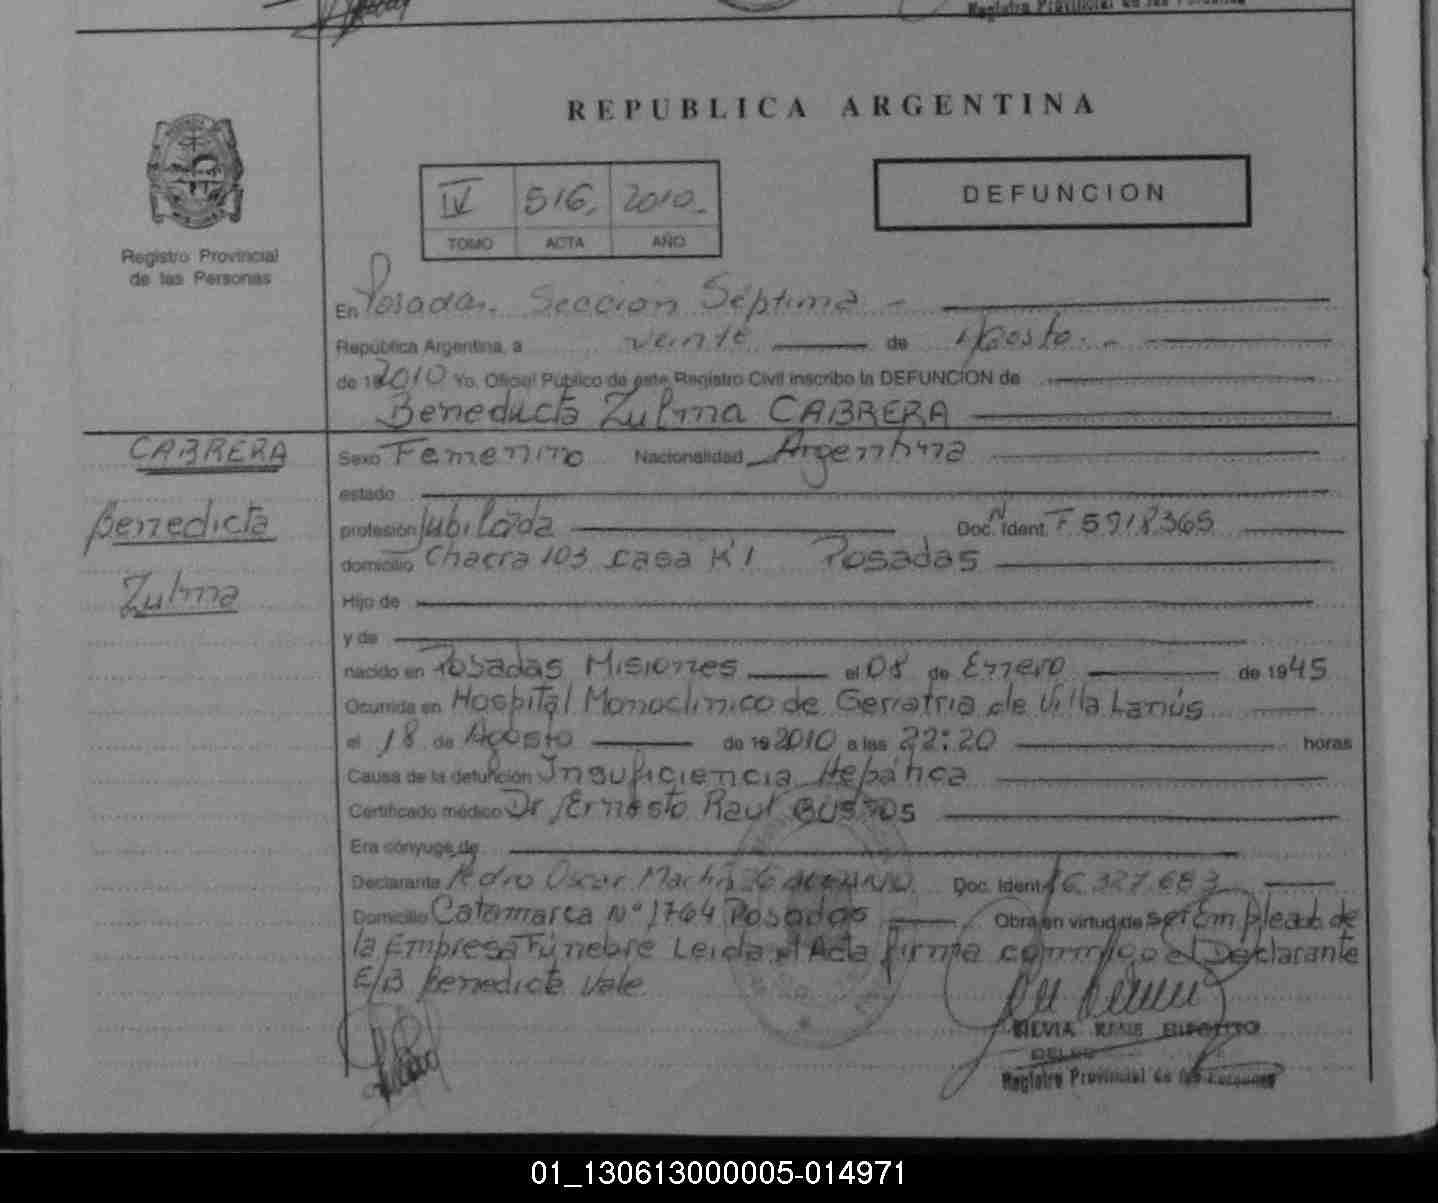 Registro Provincial de las Personas
REPUBLICA ARGENTINA
IV 516. 2010.
TOMO ACTA AÑO
DEFUNCION
Registro Provincial
de las Personas
En Posadas. Sección Séptima -
República Argentina, a veinte de Agosto. -
de 19 2010 Yo, Oficial Público de este Registro Civil inscribo la DEFUNCION de
Beneducta Zulma CABRERA
CABRERA
Benedicta
Zulma
Sexo Femenino Nacionalidad Argentina
estado
profesión Jubilada Doc. Ident. F 5918365
domicilio Chacra 103 casa K'1 Posadas
Hijo de
y de
nacido en Posadas Misiones el 08 de Enero de 1945
Ocurrida en Hospital Monoclinico de Geriatria de Villa Lanús
el 18 de Agosto de 19 2010 a las 22:20 horas
Causa de la defunción Insuficiencia Hepática
Certificado médico Dr Ernesto Raul BUSTOS
Era cónyuge de
Declarante Pedro Oscar Martin Doc. Ident 16.327.683
Domicilio Catamarca N° 1764 Posadas Obra en virtud de ser Empleado de
la Empresa Fúnebre Leida el Acta firma conmigo el Declarante
E/B Benedicta Vale
SILVIA
Registro Provincial de las Personas
01_130613000005-014971